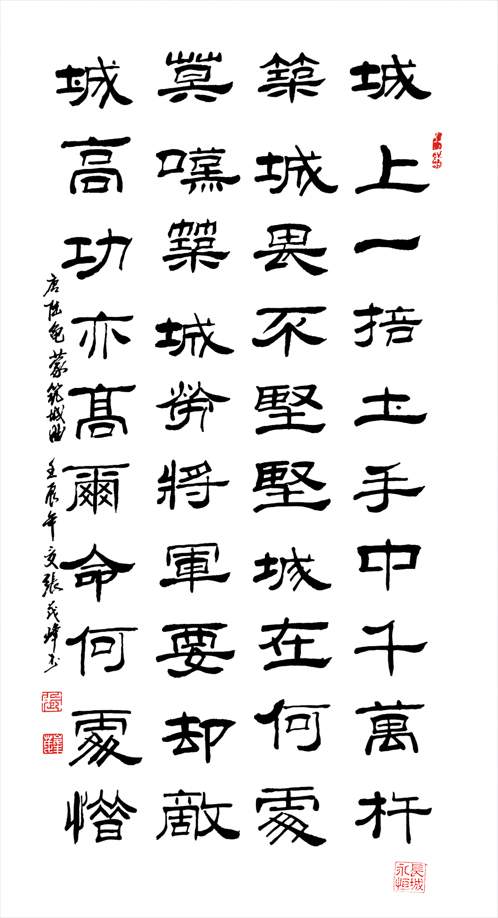 城上一掊土手中千萬杵
築城畏不堅堅城在何處
莫嘆築城勞將軍要却敵
城高功亦髙爾命何處惜
唐陆龟蒙筑城曲 壬辰年 張 书
長城永恒